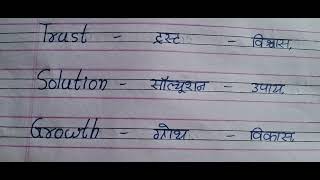 Trust - ट्रस्ट - विश्वास
Solution - सौल्यूशन - उपाय
Growth - ग्रोथ - विकास